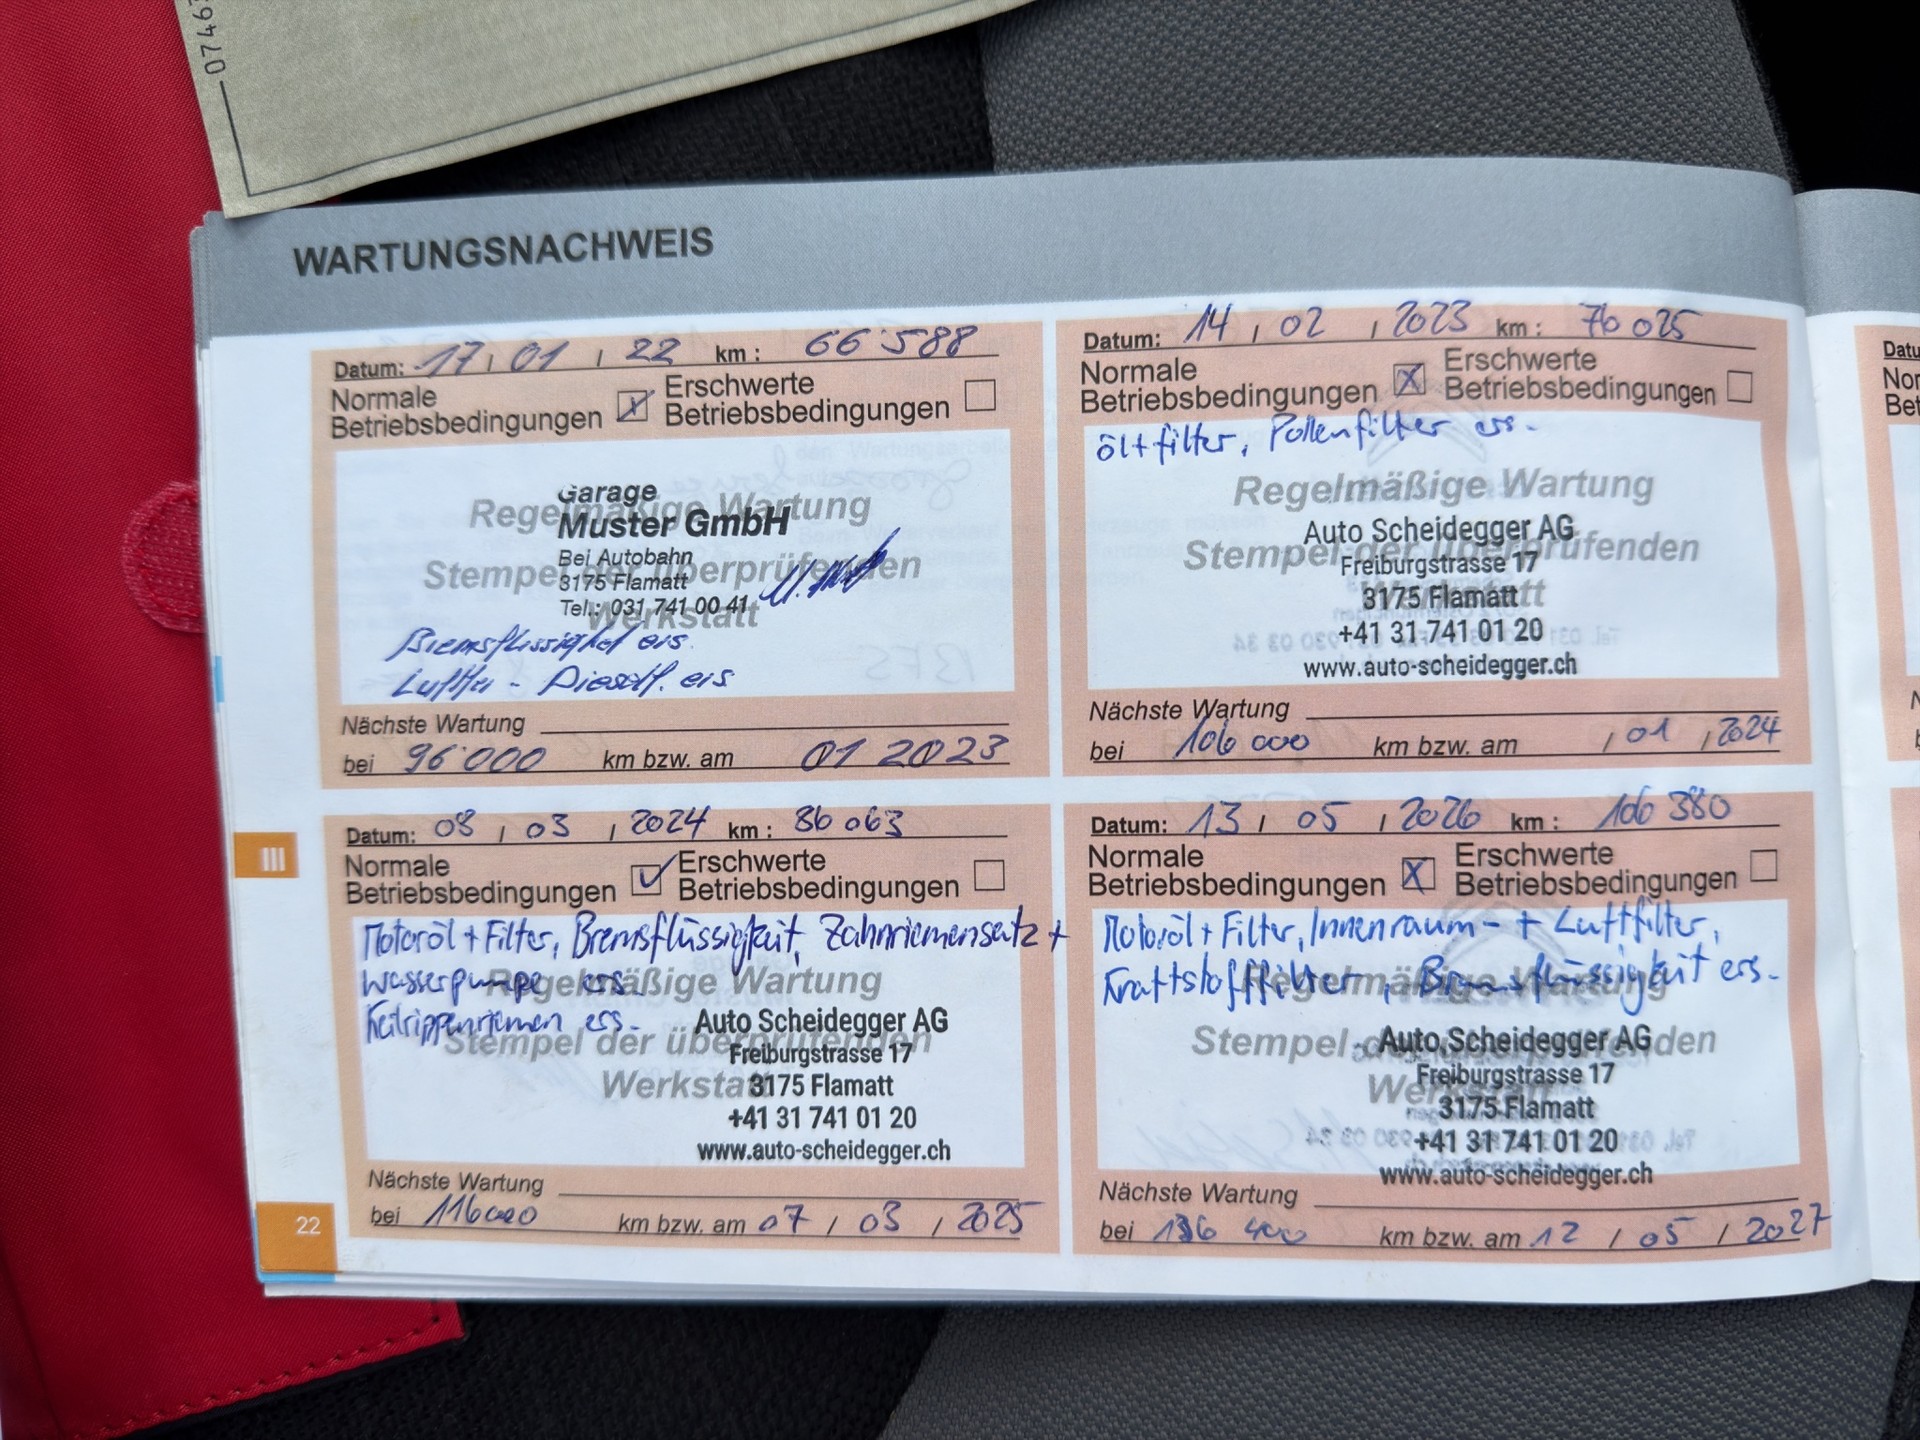 0746
WARTUNGSNACHWEIS
Datum: 17 / 01 / 22 km : 66'588
Normale Betriebsbedingungen
Erschwerte Betriebsbedingungen
Regelmäßige Wartung
Stempel der überprüfenden
Werkstatt
Garage
Muster GmbH
Bei Autobahn
3175 Flamatt
Tel.: 031 741 00 41
Bremsflüssigkeit ers.
Luftfil - Dieself. ers
Nächste Wartung
bei 96'000 km bzw. am 01 2023
Datum: 14 / 02 / 2023 km : 76 025
Normale Betriebsbedingungen
Erschwerte Betriebsbedingungen
Öl+filter, Pollenfilter ers.
Regelmäßige Wartung
Stempel der überprüfenden
Auto Scheidegger AG
Freiburgstrasse 17
3175 Flamatt
+41 31 741 01 20
www.auto-scheidegger.ch
Nächste Wartung
bei 106 000 km bzw. am / 01 / 2024
Datum: 08 / 03 / 2024 km : 86 063
Normale Betriebsbedingungen
Erschwerte Betriebsbedingungen
Motoröl + Filter, Bremsflüssigkeit, Zahnriemensatz +
Wasserpumpe ers.
Keilrippenriemen ers.
Regelmäßige Wartung
Stempel der überprüfenden
Werkstatt
Auto Scheidegger AG
Freiburgstrasse 17
3175 Flamatt
+41 31 741 01 20
www.auto-scheidegger.ch
Nächste Wartung
bei 116000 km bzw. am 07 / 03 / 2025
Datum: 13 / 05 / 2026 km : 106 380
Normale Betriebsbedingungen
Erschwerte Betriebsbedingungen
Motoröl + Filter, Innenraum- + Luftfilter,
Kraftstofffilter, Bremsflüssigkeit ers.
Regelmäßige Wartung
Stempel der überprüfenden
Werkstatt
Auto Scheidegger AG
Freiburgstrasse 17
3175 Flamatt
+41 31 741 01 20
www.auto-scheidegger.ch
Nächste Wartung
bei 136 400 km bzw. am 12 / 05 / 2027
III
22
Datu
Nor
Bet